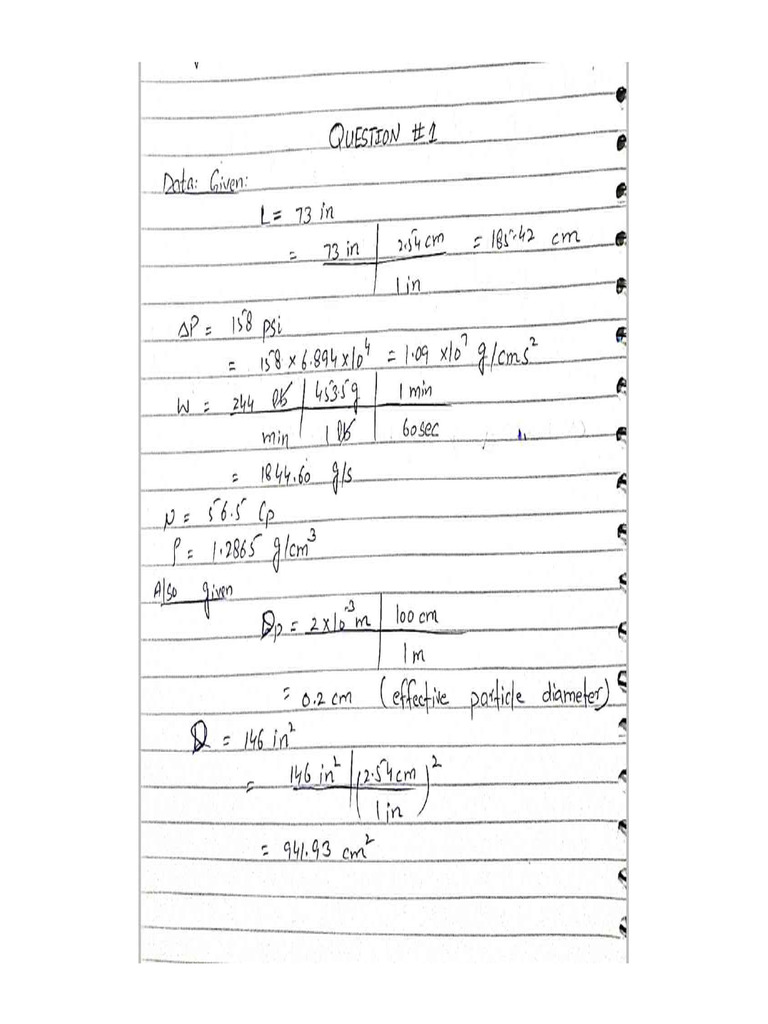 QUESTION #1
Data: Given:
L = 73 in
= 73 in | 2.54 cm = 185.42 cm
1 in
ΔP = 158 psi
= 158 × 6.894 × 10⁴ = 1.09 × 10⁷ g/cms²
W = 244 lb | 453.5g | 1 min
min | 1 lb | 60 sec
= 1844.60 g/s
μ = 56.5 Cp
ρ = 1.2865 g/cm³
Also given
Dp = 2×10⁻³ m | 100 cm
1 m
= 0.2 cm (effective particle diameter)
D = 146 in²
= 146 in² | (2.54 cm)²
1 in
= 941.93 cm²